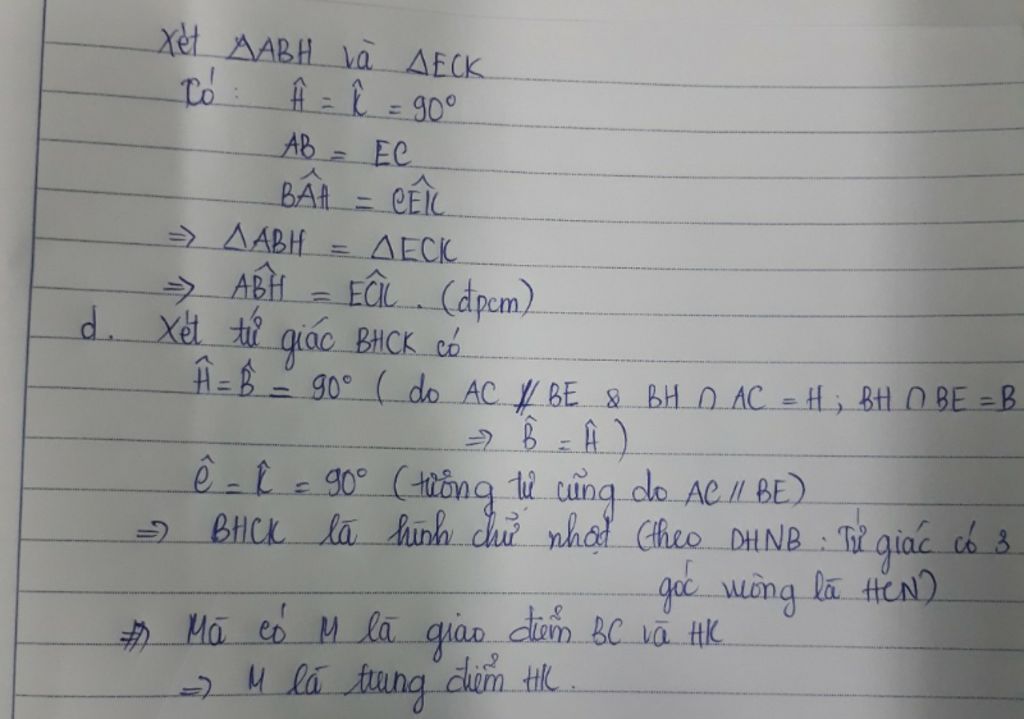 Xét ΔABH và ΔECK
Có : Ĥ = K̂ = 90°
AB = EC
BÂH = CÊK
⇒ ΔABH = ΔECK
⇒ AB̂H = EĈK . (đpcm)
d. Xét tứ giác BHCK có
Ĥ = B̂ = 90° ( do AC // BE & BH ∩ AC = H ; BH ∩ BE = B
⇒ B̂ = Ĥ )
Ĉ = K̂ = 90° (tương tự cũng do AC // BE)
⇒ BHCK là hình chữ nhật (theo DHNB : Tứ giác có 3
góc vuông là HCN)
⇒ Mà có M là giao điểm BC và HK
⇒ M là trung điểm HK.